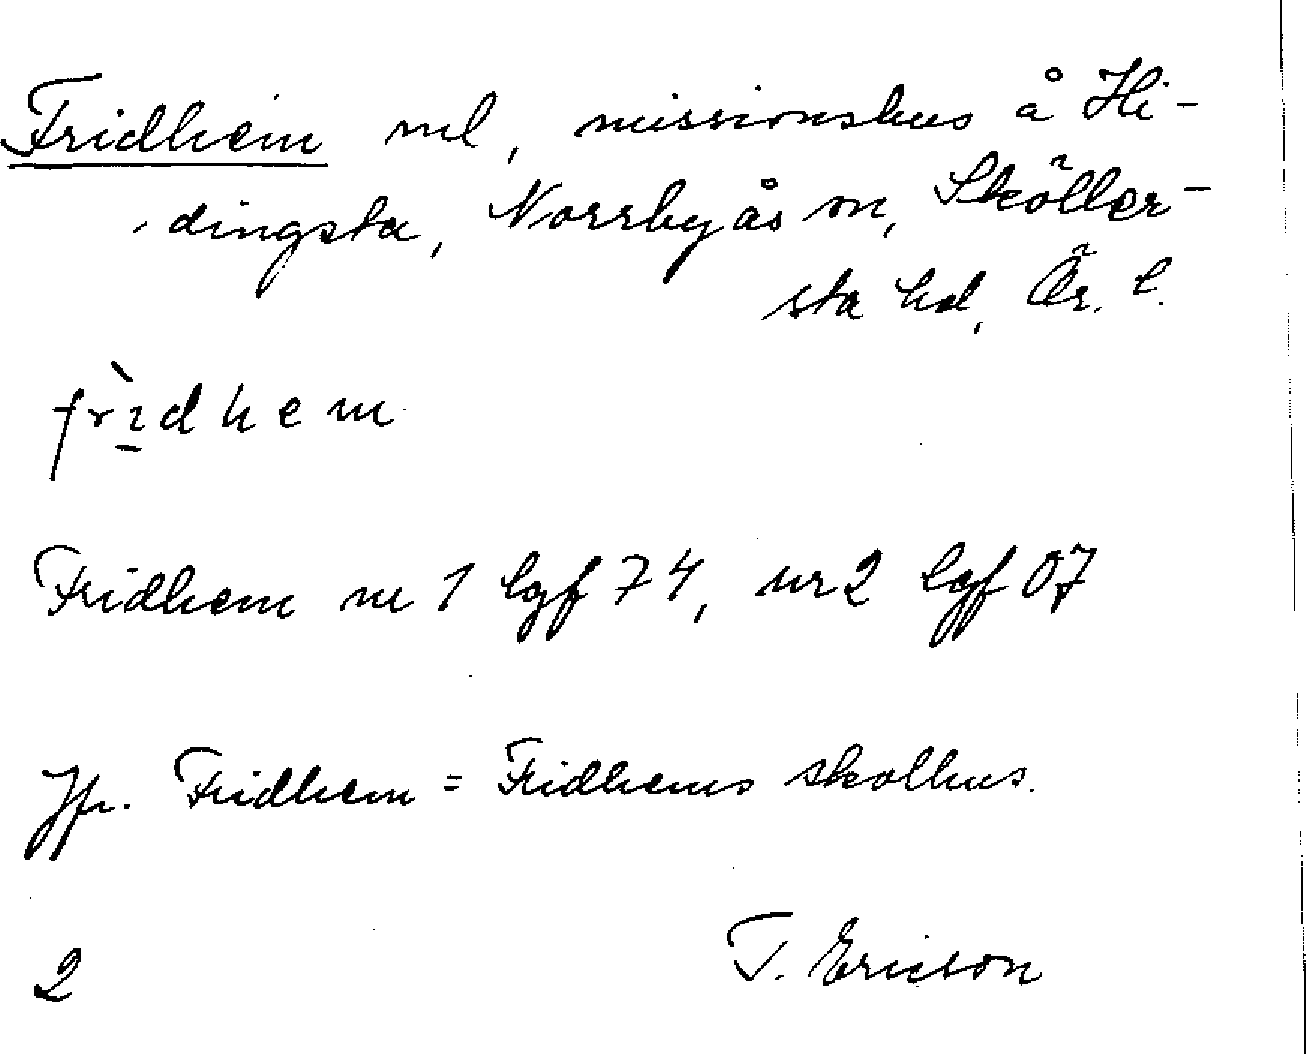 Fridhem ml, missionshus å Hi-
dingsta, Norrbyås sn, Sköller-
sta hd, Ör. l.
frìdhem
Fridhem nr 1 lgf 74, nr 2 lgf 07
Jfr. Fridhem = Fridhems skolhus.
T. Ericson
2